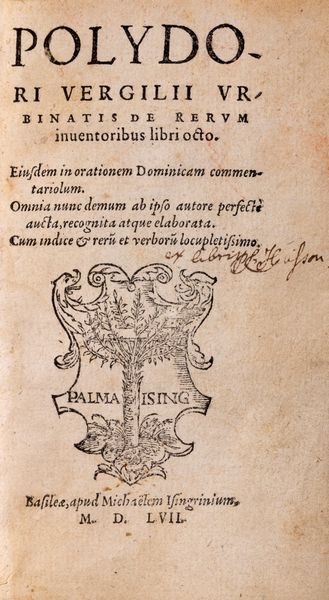 POLYDO-
RI VERGILII VR-
BINATIS DE RERVM
inuentoribus libri octo.
Eiusdem in orationem Dominicam commen-
tariolum.
Omnia nunc demum ab ipso autore perfectè
aucta, recognita atque elaborata.
Cum indice & rerũ et verborũ locupletissimo.
ex libris
PALMA ISING
Basileæ, apud Michaëlem Isingrinium.
M. D. LVII.